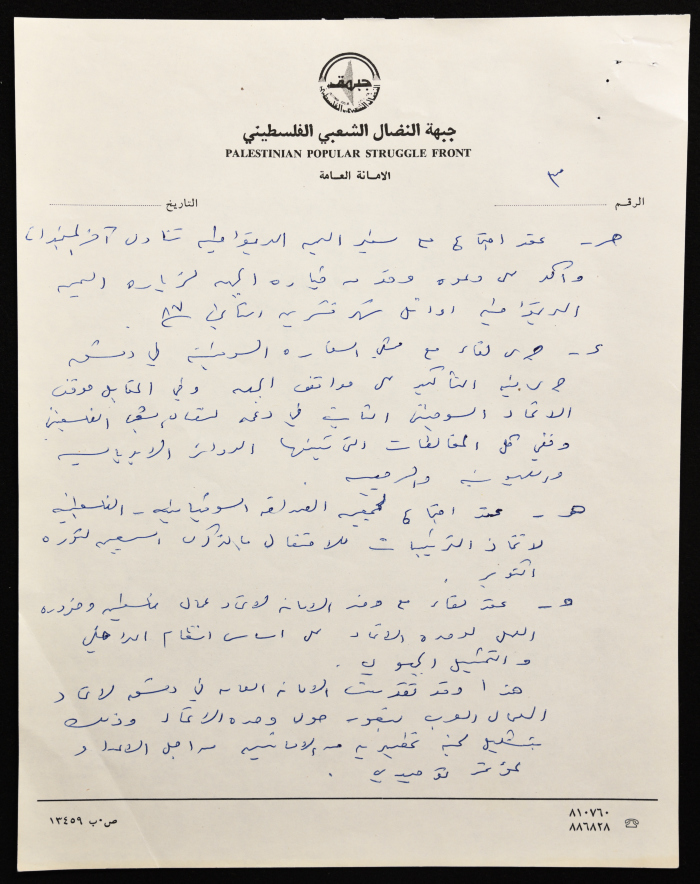 جبهة
جبهة النضال الشعبي الفلسطيني
PALESTINIAN POPULAR STRUGGLE FRONT
الامانة العامة
٣
الرقم التاريخ
عقد اجتماع مع سفير اليمن الديمقراطيه تناول آخر المستجدات
وأكد على دعوه وفد من قياده الجبهه لزياره اليمن
الديمقراطيه اوائل شهر تشرين الثاني ٨٧
ـ جرى لقاء مع ممثل السفاره السوفيتية في دمشق
جرى فيه التأكيد على مواقف الجبهه وفي المقابل موقف
الاتحاد السوفيتي الثابت في دعمه لنضال شعب الفلسطيني
كل المغالطات التي تبثها الدوائر الامبرياليه
والصهيونيه والرجعيه .
هـ ـ عقد اجتماع لجمعيه الصداقه السوفياتيه - الفلسطينيه
لاتخاذ الترتيبات للاحتفال بالذكرى السبعين لثوره
اكتوبر .
و ـ عقد لقاء مع وفد الامانه لاتحاد عمال فلسطين وضروره
العمل لوحده الاتحاد على اساس النظام الداخلي
والتمثيل الجبهوي .
هذا وقد تقدمت الامانه العامه في دمشق لاتحاد
العمال العرب بتصور حول وحده الاتحاد وذلك
بتشكيل لجنة تحضيريه من الامانتين من اجل الاعداد
لمؤتمر توحيدي .
ص.ب ١٣٤٥٩
٨١٠٧٦٠
٨٨٦٨٢٨